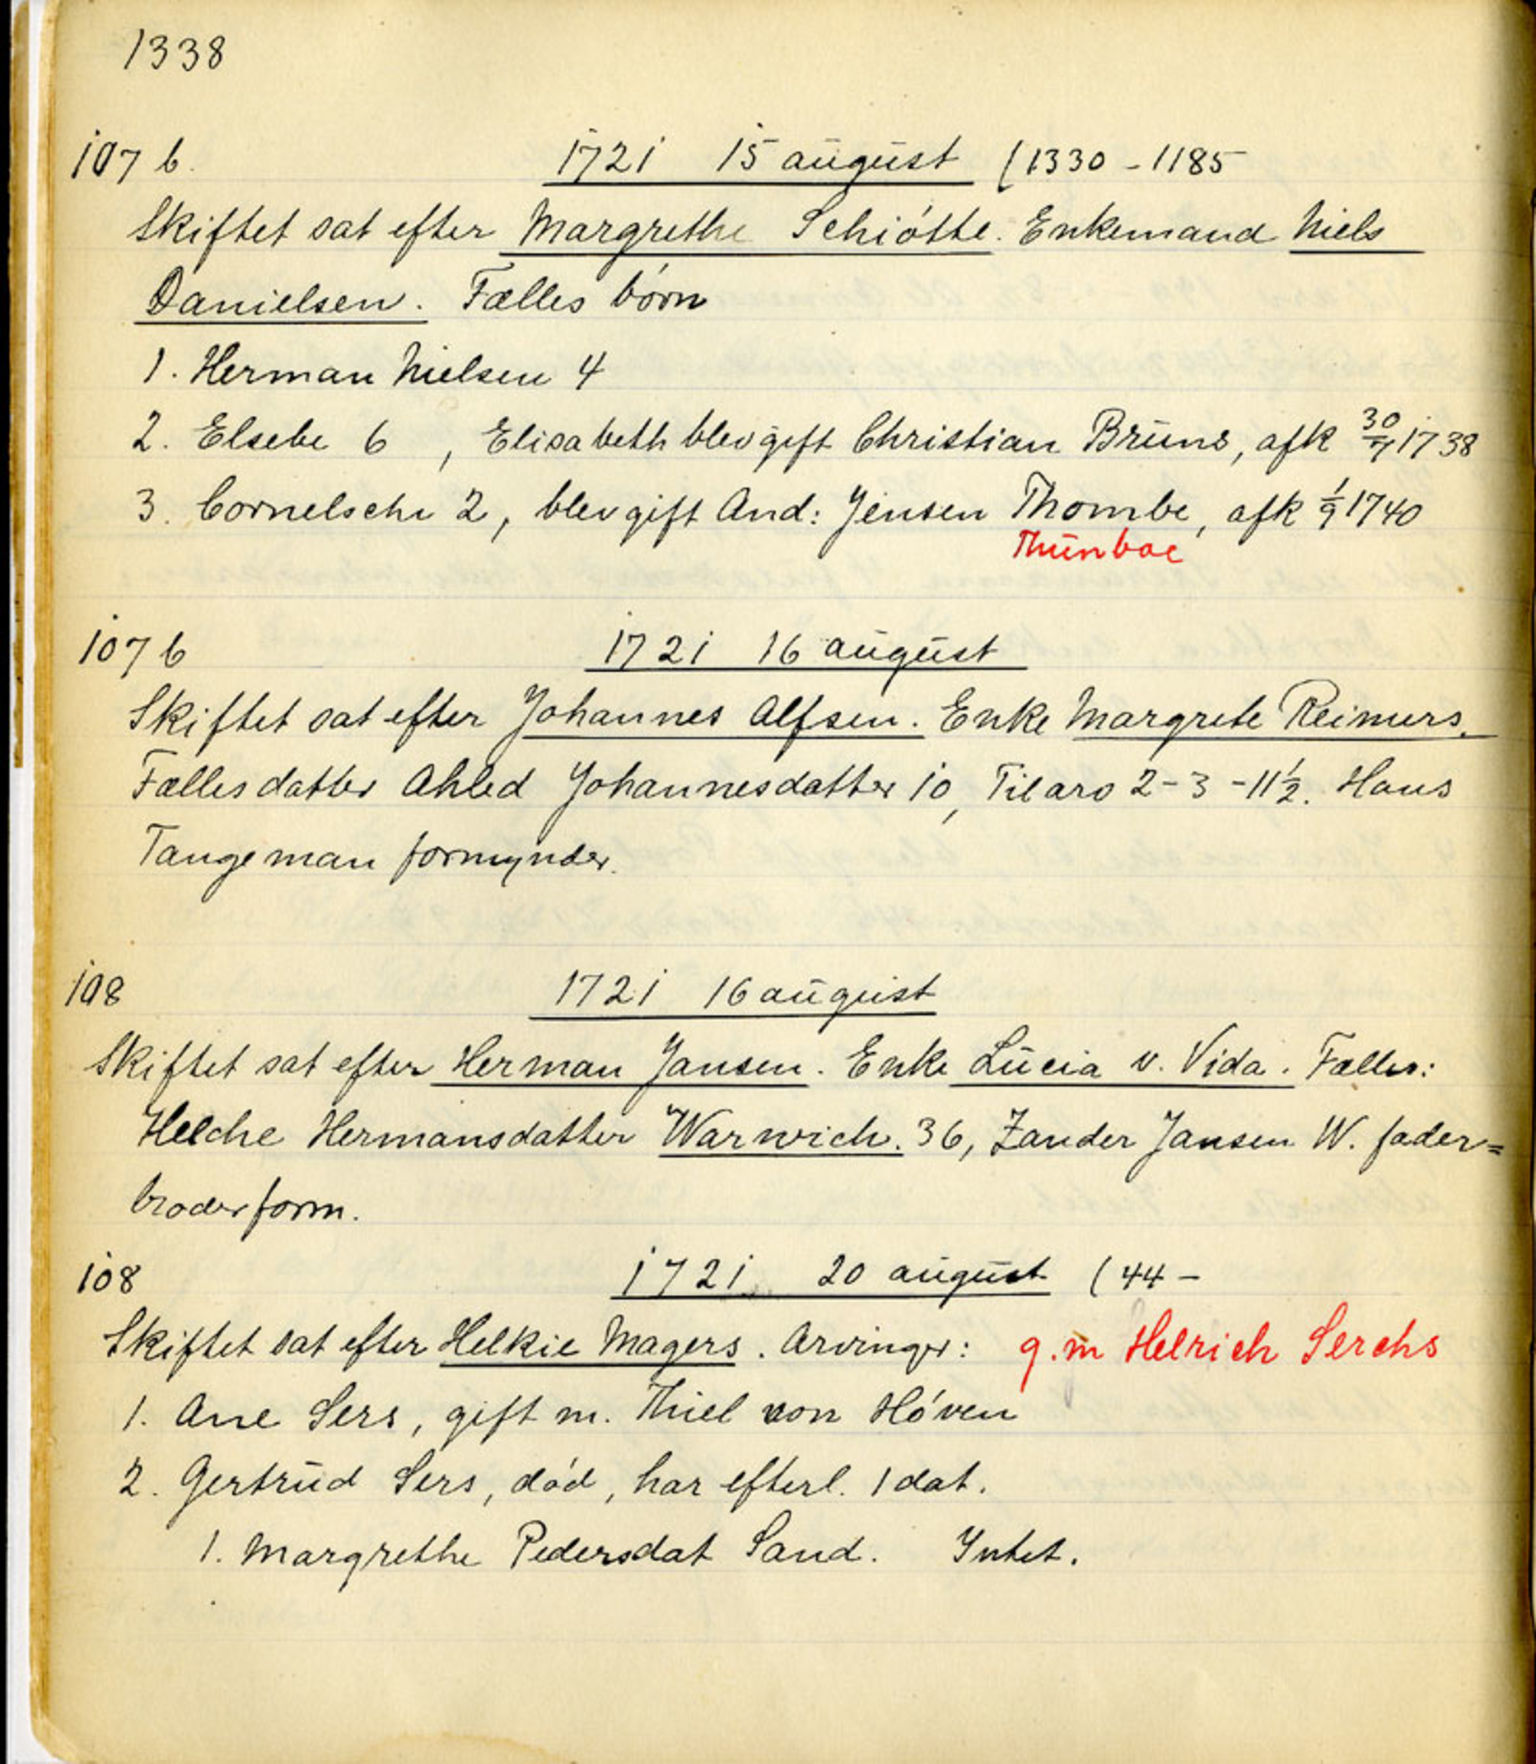 1338
107 b. 1721 15 august (1330 - 1185
Skiftet sat efter Margrethe Schiøtte. Enkemand Niels
Danielsen. Fælles børn
1. Herman Nielsen 4
2. Elsebe 6, Elisabeth blev gift Christian Bruns, afk 30/7 1738
3. Cornelsche 2, blev gift And: Jensen Thombe, afk 1/9 1740
Thunboe
107 b 1721 16 august
Skiftet sat efter Johannes Alfsen. Enke Margrete Reimers.
Fælles datter Ahled Johannesdatter 10, Til arv 2-3-11½. Hans
Tangeman formynder.
108 1721 16 august
Skiftet sat efter Herman Jansen. Enke Lucia v. Vida. Fælles:
Helche Hermansdatter Warwich. 36, Zander Jansen W. fader=
broder form.
108 1721 20 august (44 -
Skiftet sat efter Helkie Magers. Arvinger: g.m Helrich Serchs
1. Ane Sers, gift m. Thiel von Høven
2. Gertrud Sers, død, har efterl. 1 dat.
1. Margrethe Pedersdat Sand. Intet.